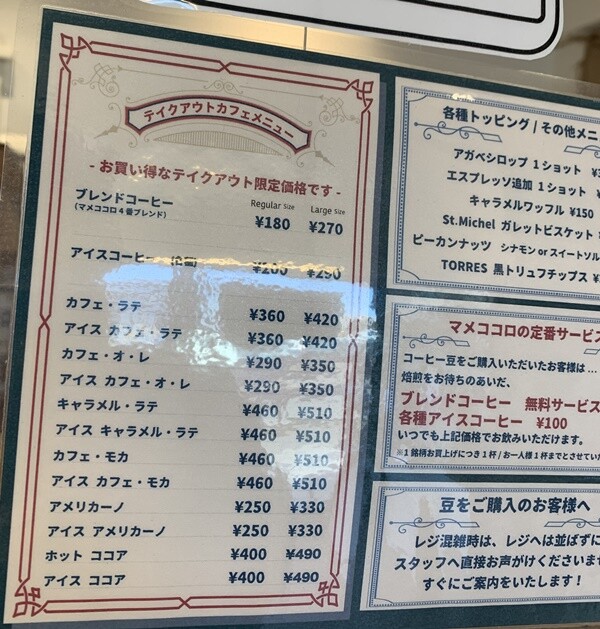 テイクアウトカフェメニュー
- お買い得なテイクアウト限定価格です -
Regular Size Large Size
ブレンドコーヒー ¥180 ¥270
(マメココロ4番ブレンド)
アイスコーヒー ¥200 ¥290
カフェ・ラテ ¥360 ¥420
アイス カフェ・ラテ ¥360 ¥420
カフェ・オ・レ ¥290 ¥350
アイス カフェ・オ・レ ¥290 ¥350
キャラメル・ラテ ¥460 ¥510
アイス キャラメル・ラテ ¥460 ¥510
カフェ・モカ ¥460 ¥510
アイス カフェ・モカ ¥460 ¥510
アメリカーノ ¥250 ¥330
アイス アメリカーノ ¥250 ¥330
ホット ココア ¥400 ¥490
アイス ココア ¥400 ¥490
各種トッピング / その他メニ
アガベシロップ 1ショット
エスプレッソ追加 1ショット ¥
キャラメルワッフル ¥150
St.Michel ガレットビスケット
ピーカンナッツ シナモン or スイートソル
TORRES 黒トリュフチップス ¥
マメココロの定番サービス
コーヒー豆をご購入いただいたお客様は…
焙煎をお待ちのあいだ、
ブレンドコーヒー 無料サービス
各種アイスコーヒー ¥100
いつでも上記価格でお飲みいただけます。
※1銘柄お買上げにつき1杯/お一人様1杯までとさせていた
豆をご購入のお客様へ
レジ混雑時は、レジへは並ばずに
スタッフへ直接お声がけくださいませ
すぐにご案内をいたします！